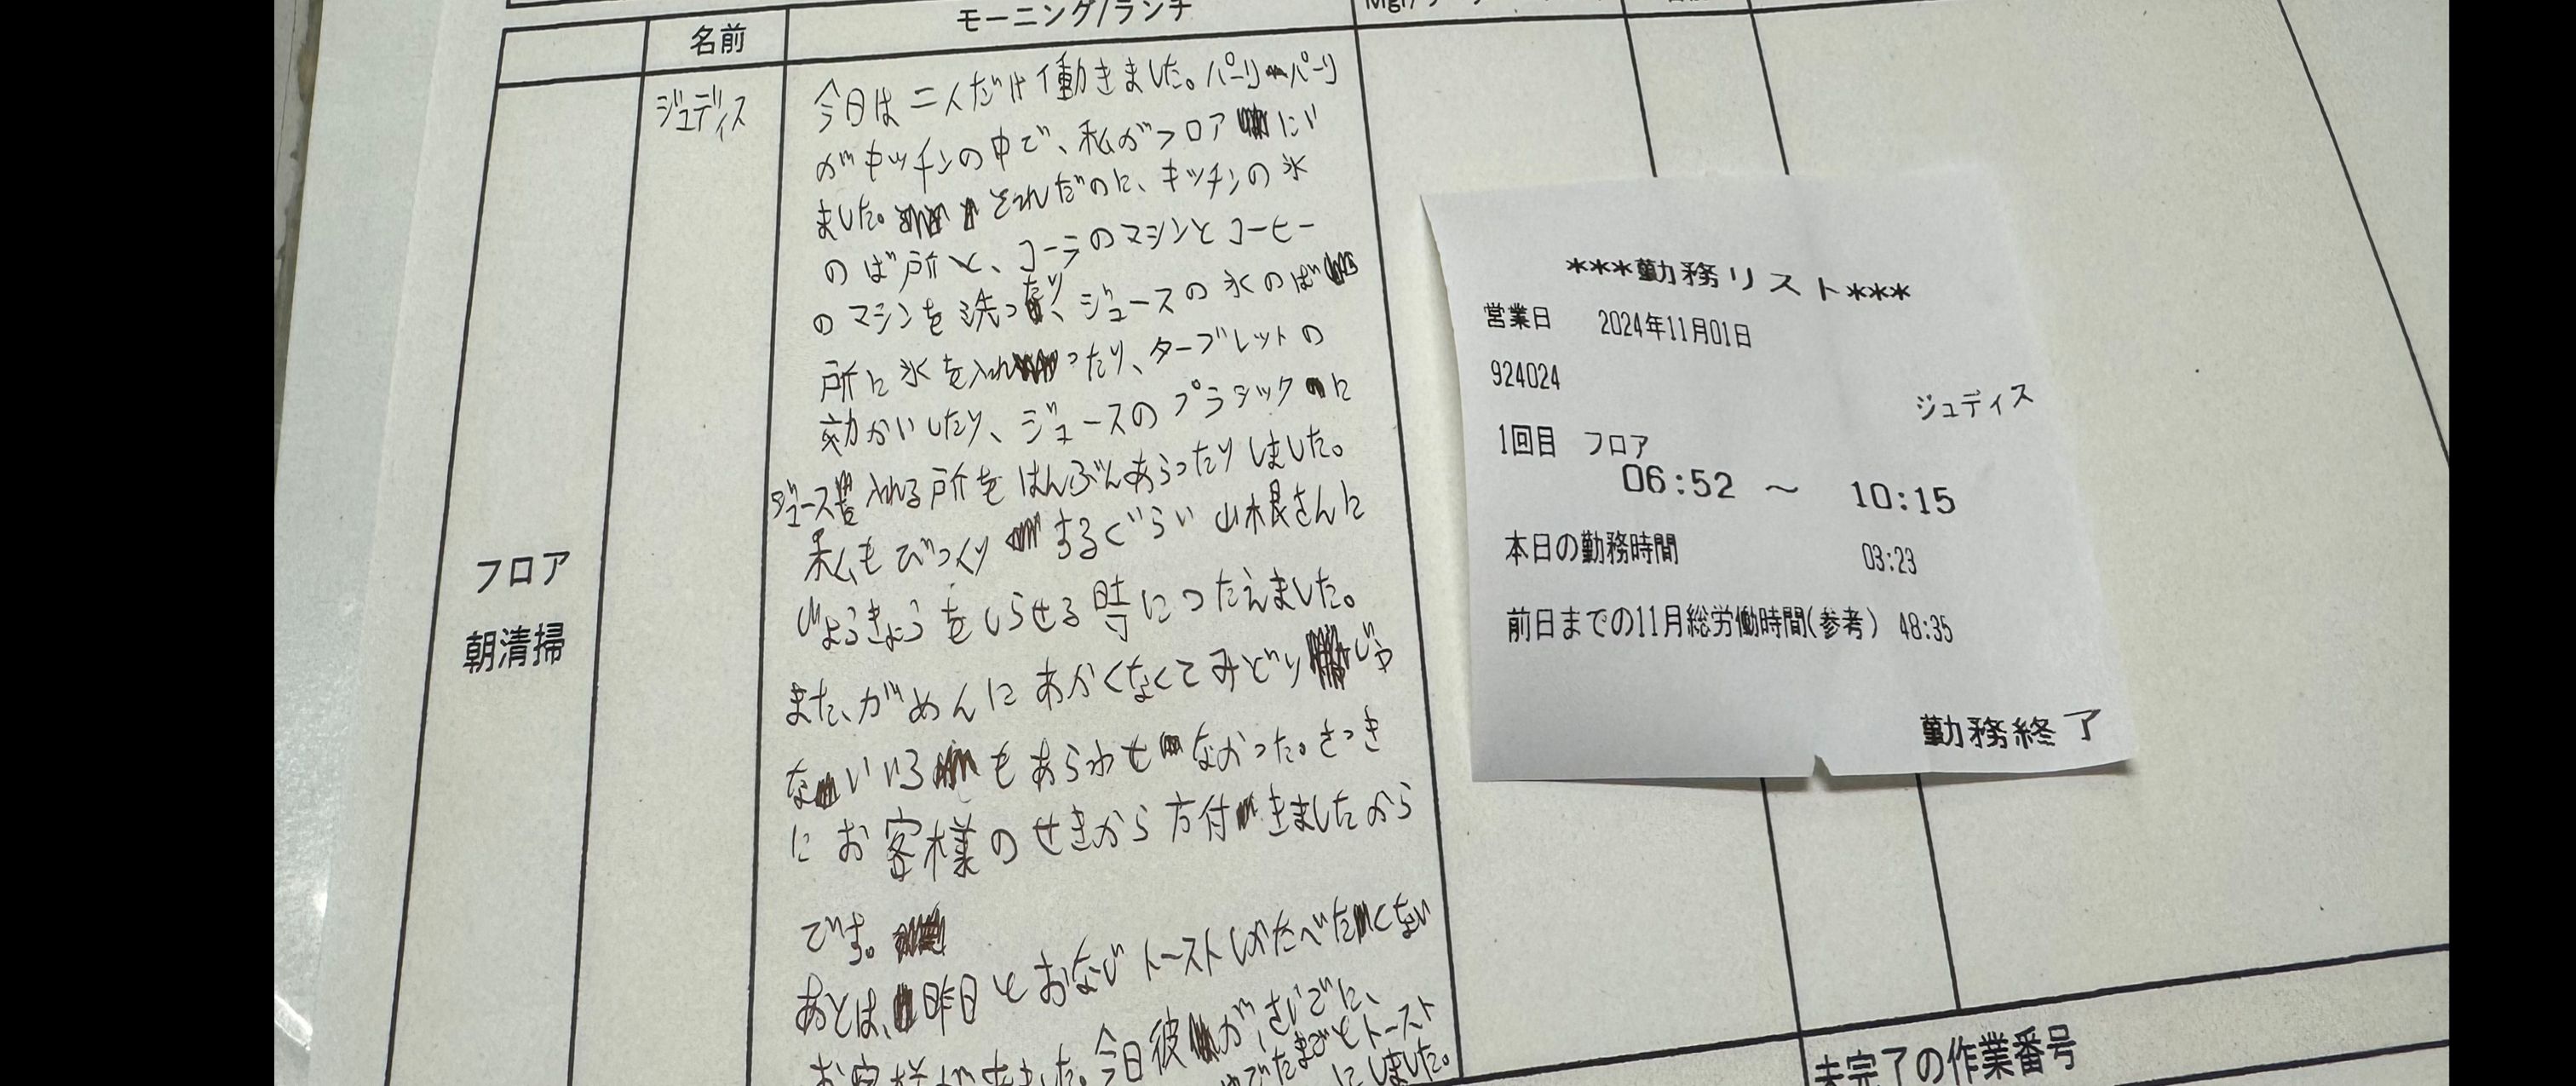 モーニング/ランチ
名前
ジュディス
今日は二人だけ働きました。パーリーパーリ
がキッチンの中で、私がフロアにい
ました。それだのに、キッチンの氷
のば所と、コーラのマシンとコーヒー
のマシンを洗ったり、ジュースの氷のば
所に氷を入れったり、ターブレットの
効かいしたり、ジュースのプラシックに
ジュース入れる所をはんぶんあらったりしました。
私もびっくりするぐらい山根さんに
じょうきょうをしらせる時につたえました。
また、がめんにあかくなくてみどりじゃ
ないいろもあらわせなかった。さっき
にお客様のせきから方付きましたから
です。
あとは、昨日とおなじトーストしかたべたくない
お客様が来ました。今日彼がさいごに、
ゆでたまごとトースト
にしました。
フロア
朝清掃
***勤務リスト***
営業日 2024年11月01日
924024
ジュディス
1回目 フロア
06:52 ～ 10:15
本日の勤務時間 03:23
前日までの11月総労働時間(参考) 48:35
勤務終了
未完了の作業番号